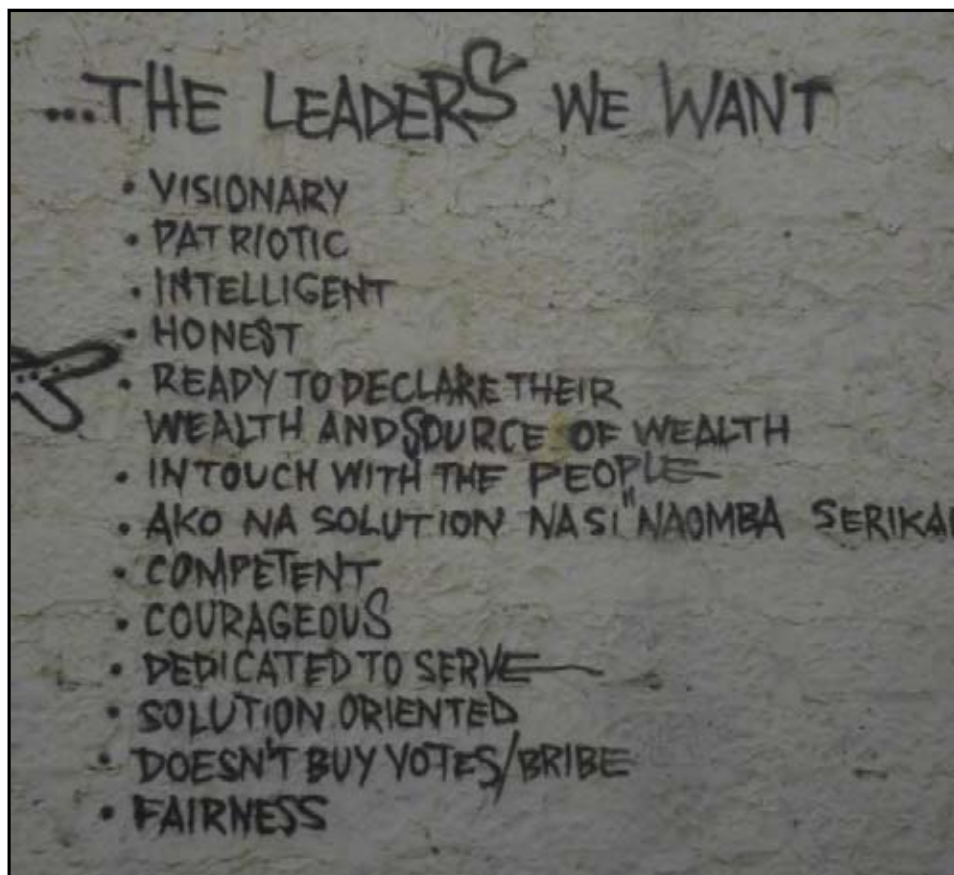 ...THE LEADERS WE WANT
• VISIONARY
• PATRIOTIC
• INTELLIGENT
• HONEST
• READY TO DECLARE THEIR
WEALTH AND SOURCE OF WEALTH
• IN TOUCH WITH THE PEOPLE
• AKO NA SOLUTION NA SI "NAOMBA
• COMPETENT
• COURAGEOUS
• DEDICATED TO SERVE
• SOLUTION ORIENTED
• DOESN'T BUY VOTES/BRIBE
• FAIRNESS